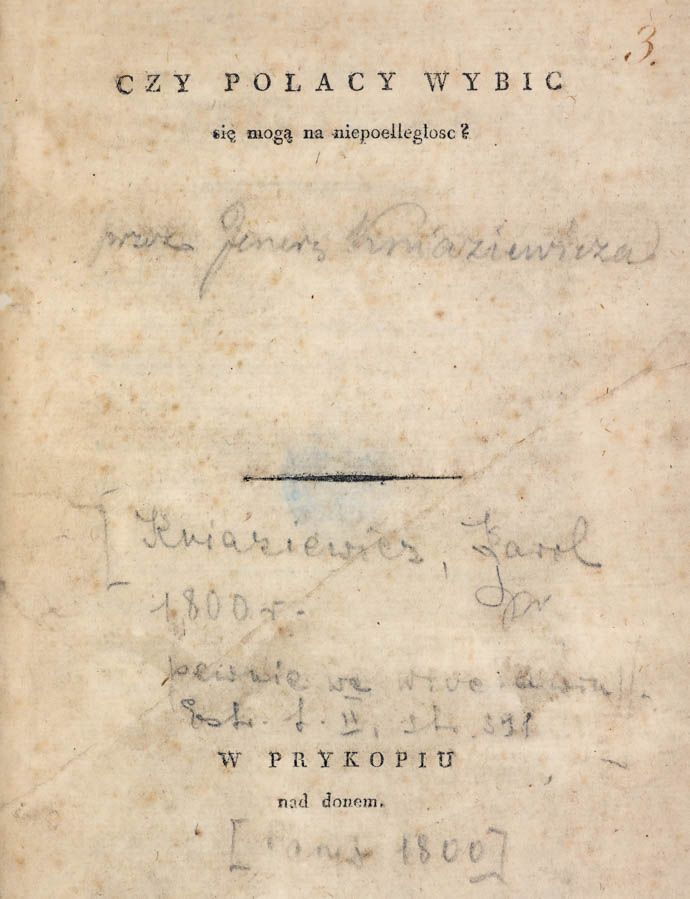 3.
CZY POLACY WYBIC
się mogą na niepoelległosc?
przez Jener: Kniaziewicza
[Kniaziewicz, Karol
1800 r.
pewnie we
Estr. t. II, st. 391
W PRYKOPIU
nad donem.
[Paryż 1800]